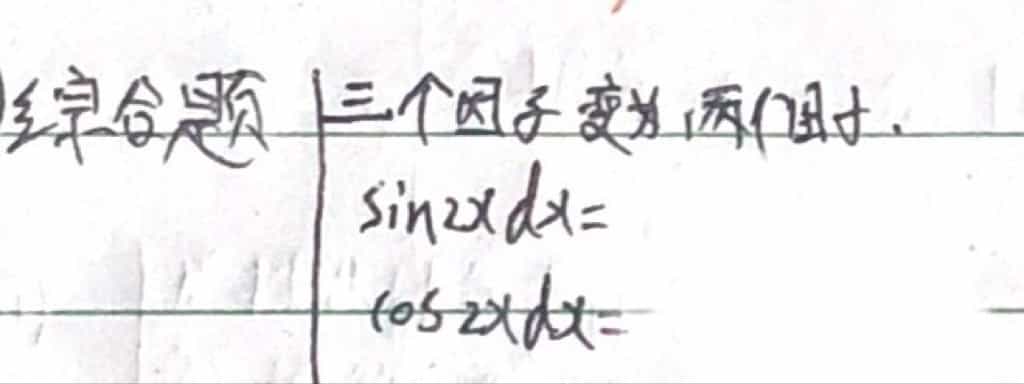 综合题
三个因子变为两个因子.
sin2xdx=
cos2xdx=